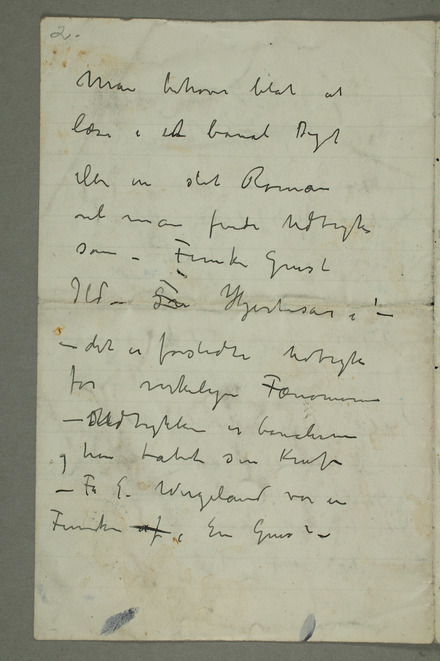 2.
Man behøver blot at
læse i et banal Digt
eller en slet Roman
vil man finde Udtryk
som – Funke Gnist
Ild – Hjertesar, !–
– det er forslidte Udtryk
for virkelige Fænomener
– Udtrykken er banalisere
og har tabt sin Kraft
– F. E. Wergeland var en
Funke af, En Gnist –